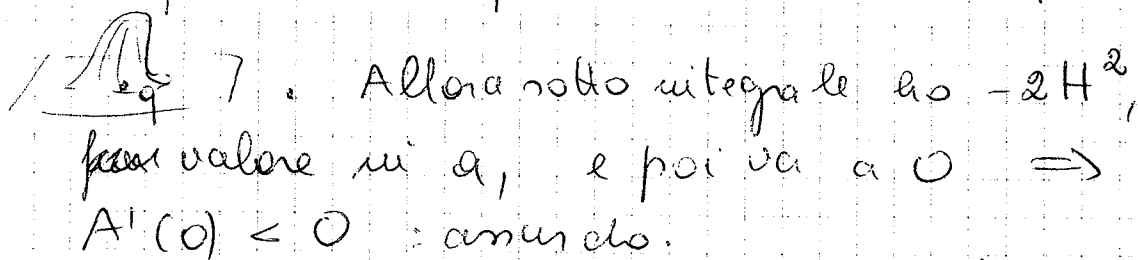 q ) . Allora sotto integrale ho -2H²,
valore in q, e poi va a 0 ⇒
A'(0) < 0 : assurdo.